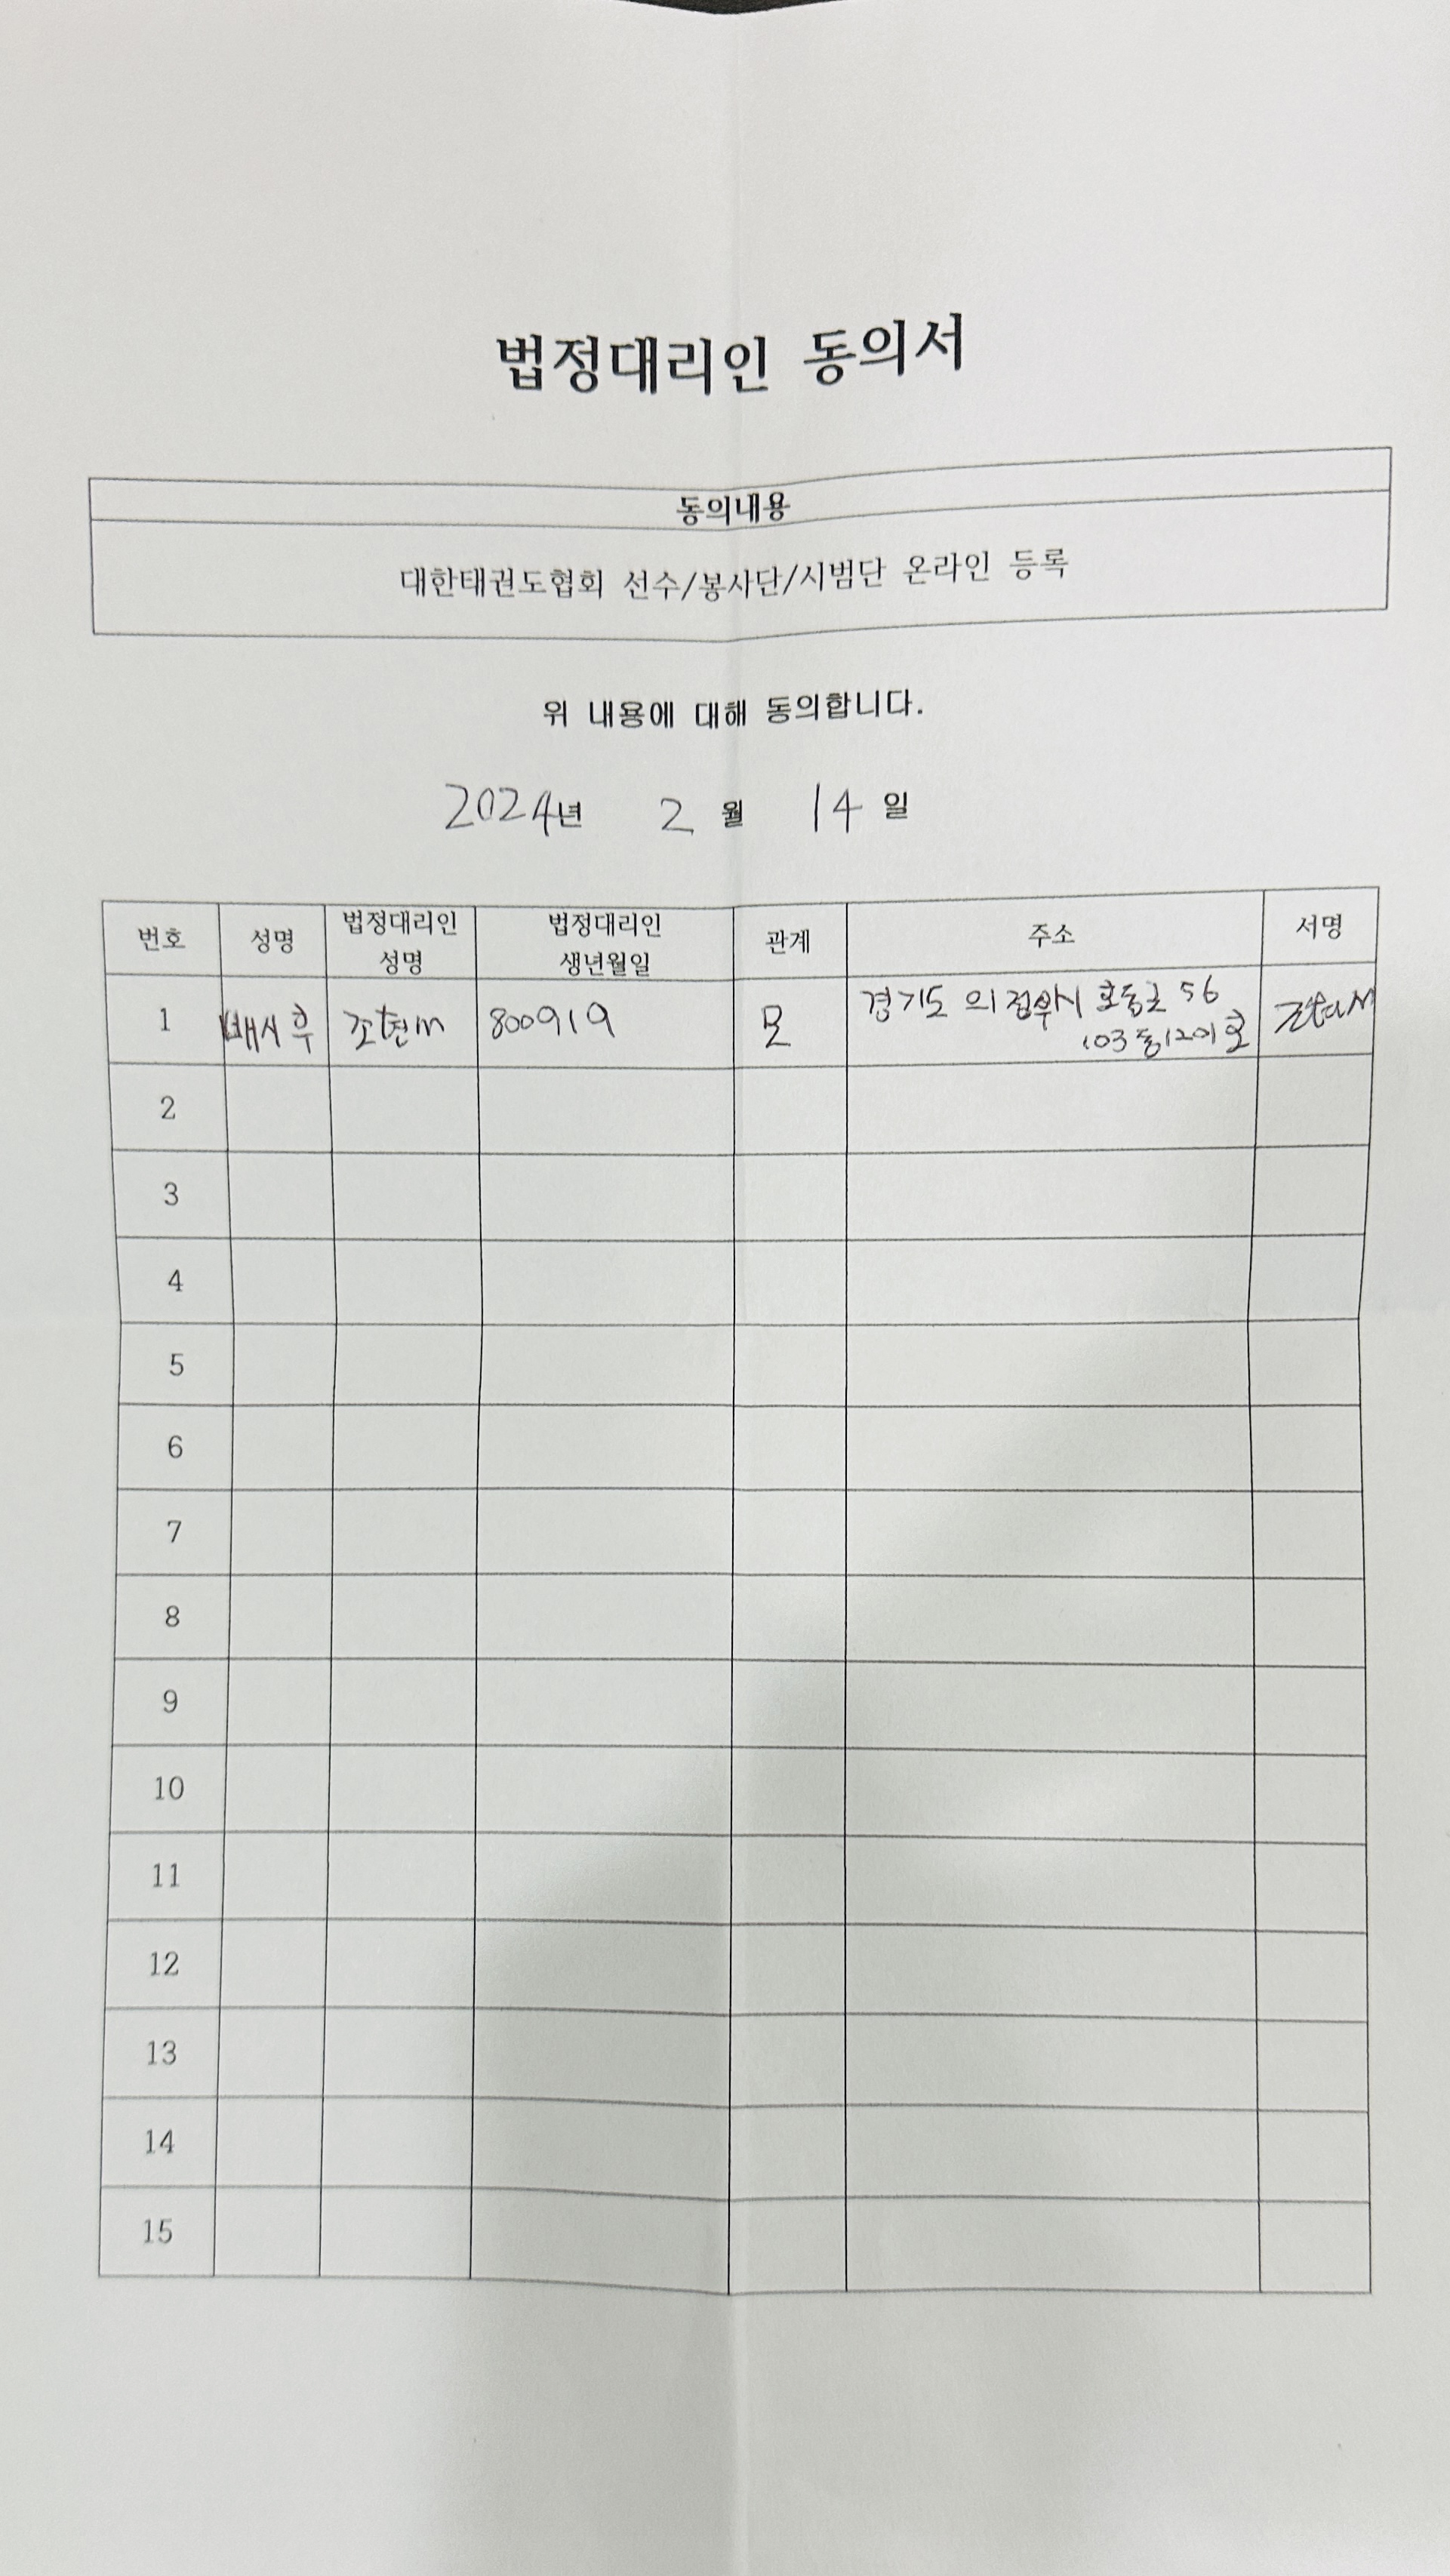 법정대리인 동의서
동의내용
대한태권도협회 선수/봉사단/시범단 온라인 등록
위 내용에 대해 동의합니다.
2024년 2 월 14 일
번호 성명 법정대리인 성명 법정대리인 생년월일 관계 주소 서명
1 배시후 800919 모 경기도 의정부시 호동로 56
103동 1201호
2
3
4
5
6
7
8
9
10
11
12
13
14
15